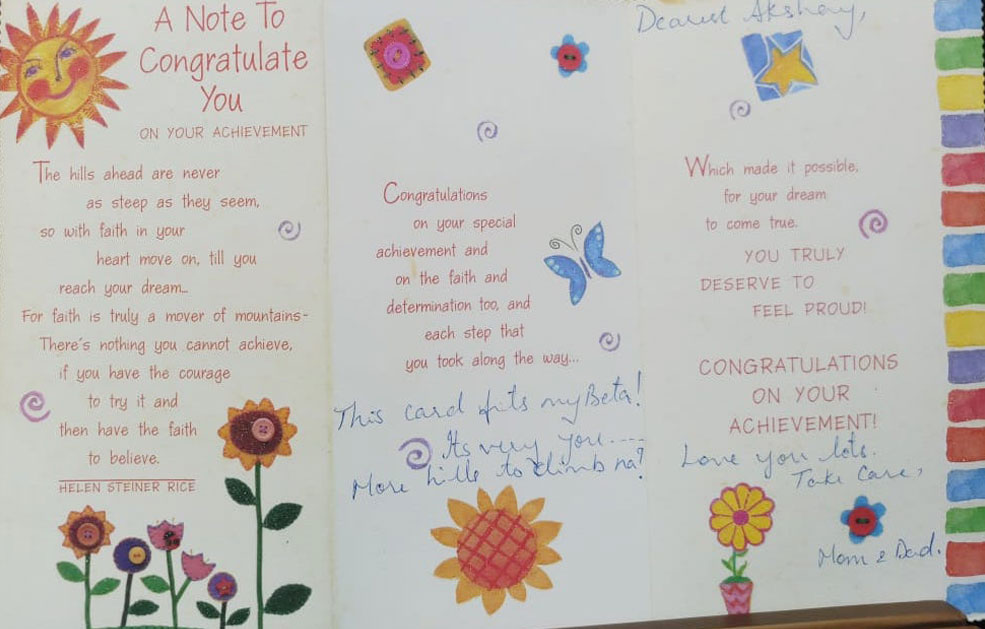 A Note To
Congratulate
You
ON YOUR ACHIEVEMENT
The hills ahead are never
as steep as they seem,
so with faith in your
heart move on, till you
reach your dream...
For faith is truly a mover of mountains-
There's nothing you cannot achieve,
if you have the courage
to try it and
then have the faith
to believe.
HELEN STEINER RICE
Congratulations
on your special
achievement and
on the faith and
determination too, and
each step that
you took along the way...
This card fits my Beta!
Its very you....
More hills to climb na?
Dearest Akshay,
Which made it possible,
for your dream
to come true.
YOU TRULY
DESERVE TO
FEEL PROUD!
CONGRATULATIONS
ON YOUR
ACHIEVEMENT!
Love you lots.
Take Care,
Mom & Dad.